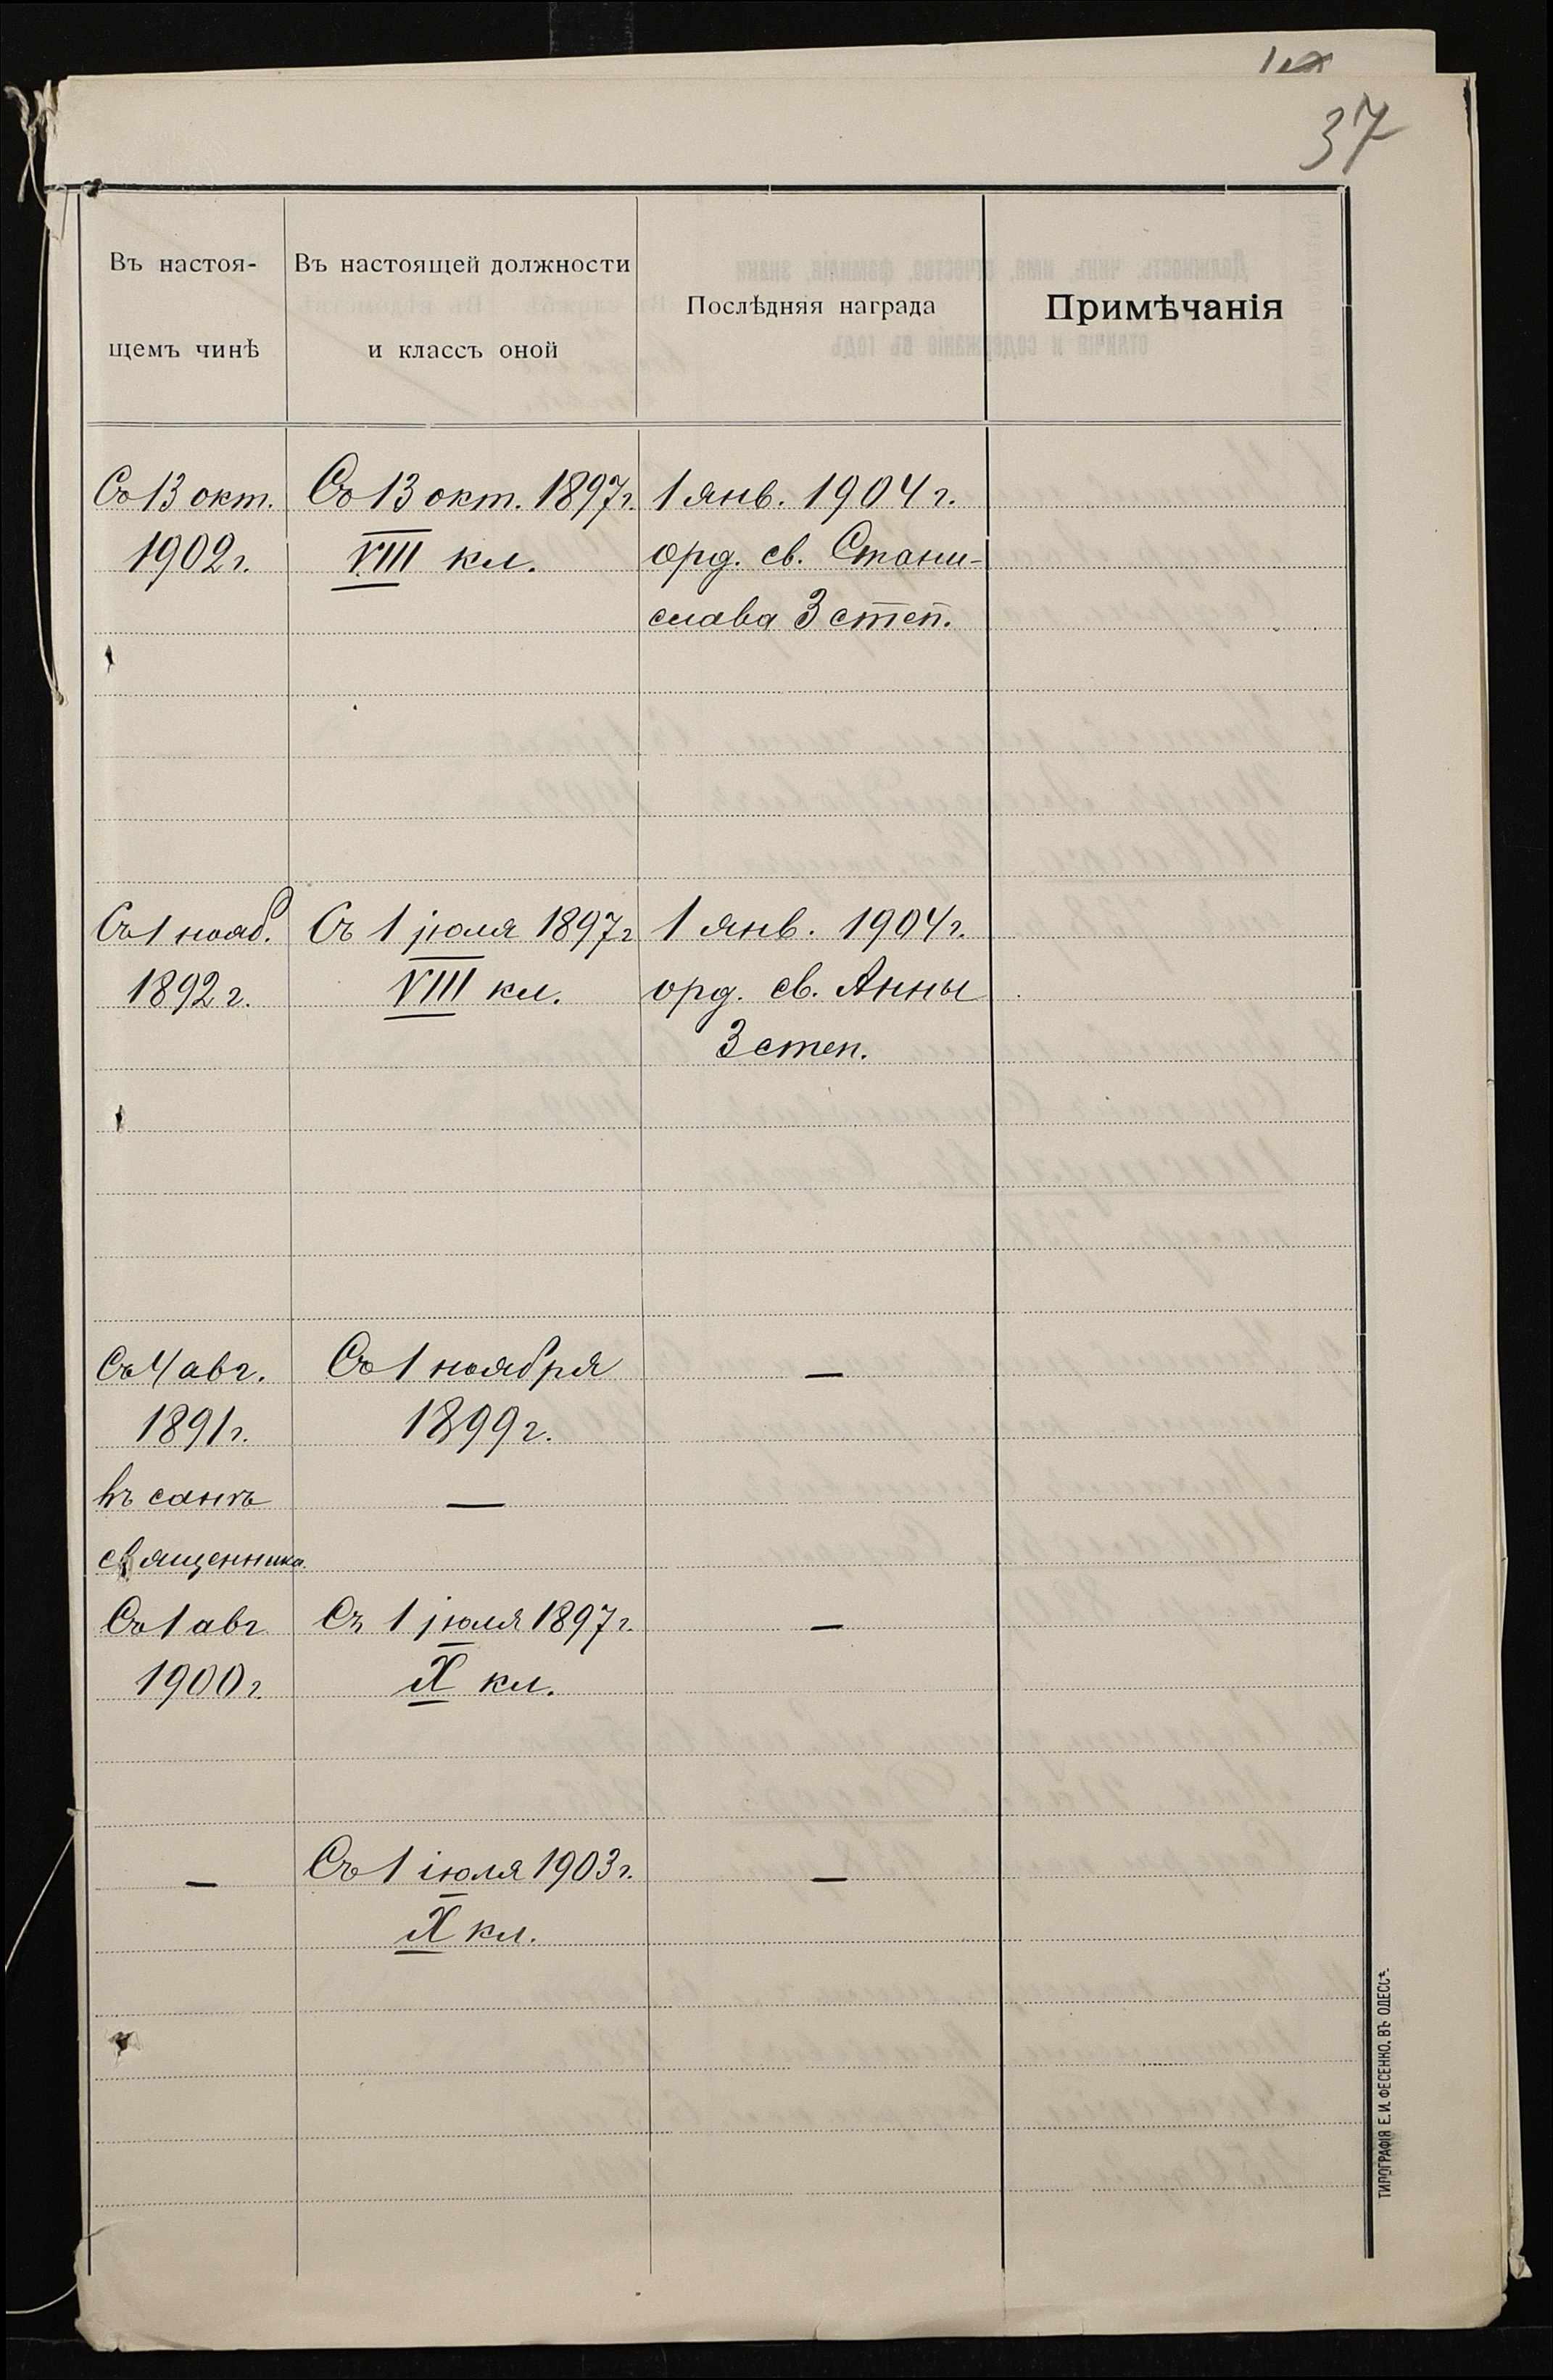 37
Въ настоя-
щемъ чинѣ
Въ настоящей должности
и классъ оной
Послѣдняя награда
Примѣчанія
Съ 13 окт. Съ 13 окт. 1897 г. 1 янв. 1904 г.
1902 г. VIII кл. орд. св. Стани-
слава 3 степ.
Съ 1 нояб. Съ 1 июля 1897 г. 1 янв. 1904 г.
1892 г. VIII кл. орд. св. Анны
3 степ.
Съ 4 авг. Съ 1 ноября —
1891 г. 1899 г.
въ санѣ —
священника.
Съ 1 авг. Съ 1 июля 1897 г. —
1900 г. X кл.
— Съ 1 июля 1903 г. —
X кл.
ТИПОГРАФІЯ Е. И. ФЕСЕНКО, ВЪ ОДЕССѢ.